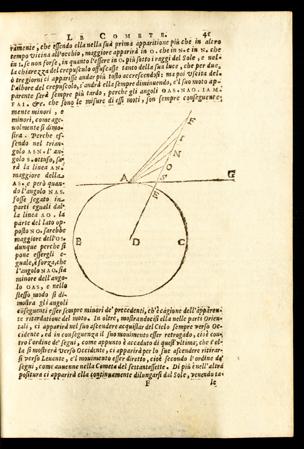 LE COMETE. 41
ramente, che essendo ella nella sua prima apparitione più che in altro
tempo vicina all'occhio, maggiore apparirà in O. che in N. e in N. che
in I. se non forse, in quanto l'essere in O. più sotto i raggi del Sole, e nel-
la chiarezza del crepuscolo offuscasse tanto della sua luce, che per due,
ò tre giorni ci apparisse andar più tosto accrescendosi: ma poi uscita del-
l'albore del crepuscolo, s'andrà ella sempre diminuendo, e'l suo moto ap-
parente sarà sempre più tardo, perche gli angoli OAS. NAO. IAM.
FAI. &c. che sono le misure di essi moti, son sempre conseguente-
mente minori, e
minori, come age-
uolmente si dimo-
stra. Perche es-
sendo nel trian-
golo ASN. l'an-
golo S. ottuso, sa-
rà la linea AN.
maggiore della
AS. e però quan-
do l'angolo NAS.
fosse segato in
parti eguali dal-
la linea AO. la
parte del lato op-
posto NO. sarebbe
maggiore dell'OS.
dunque perche si
pone essergli e-
guale, è forza, che
l'angolo NAO. sia
minore dell'ango-
lo OAS, e nello
stesso modo si di-
mostra gli angoli
conseguenti esser sempre minori de' precedenti, ch'è cagione dell'apparen-
te ritardatione del moto. In oltre, mostrandocisi ella nelle parti Orien-
tali, ci apparirà nel suo ascendere acquistar del Cielo sempre verso Oc-
cidente, ed in conseguenza il suo mouimento esser retrogrado, cioè con-
tro l'ordine de' segni, come appunto è accaduto di quest'vltima; che s'el-
la si mostrerà verso Occidente, ci apparirà per lo suo ascendere ritirar-
si verso Leuante, e'l mouimento esser diretto, cioè secondo l'ordine de'
segni, come auuenne nella Cometa del settantasette. Di più è nell'altra
positura ci apparirà ella continuamente dilungarsi dal Sole, venendo ta-
F le
F
I
N
O
S
A
G
E
B
D
C